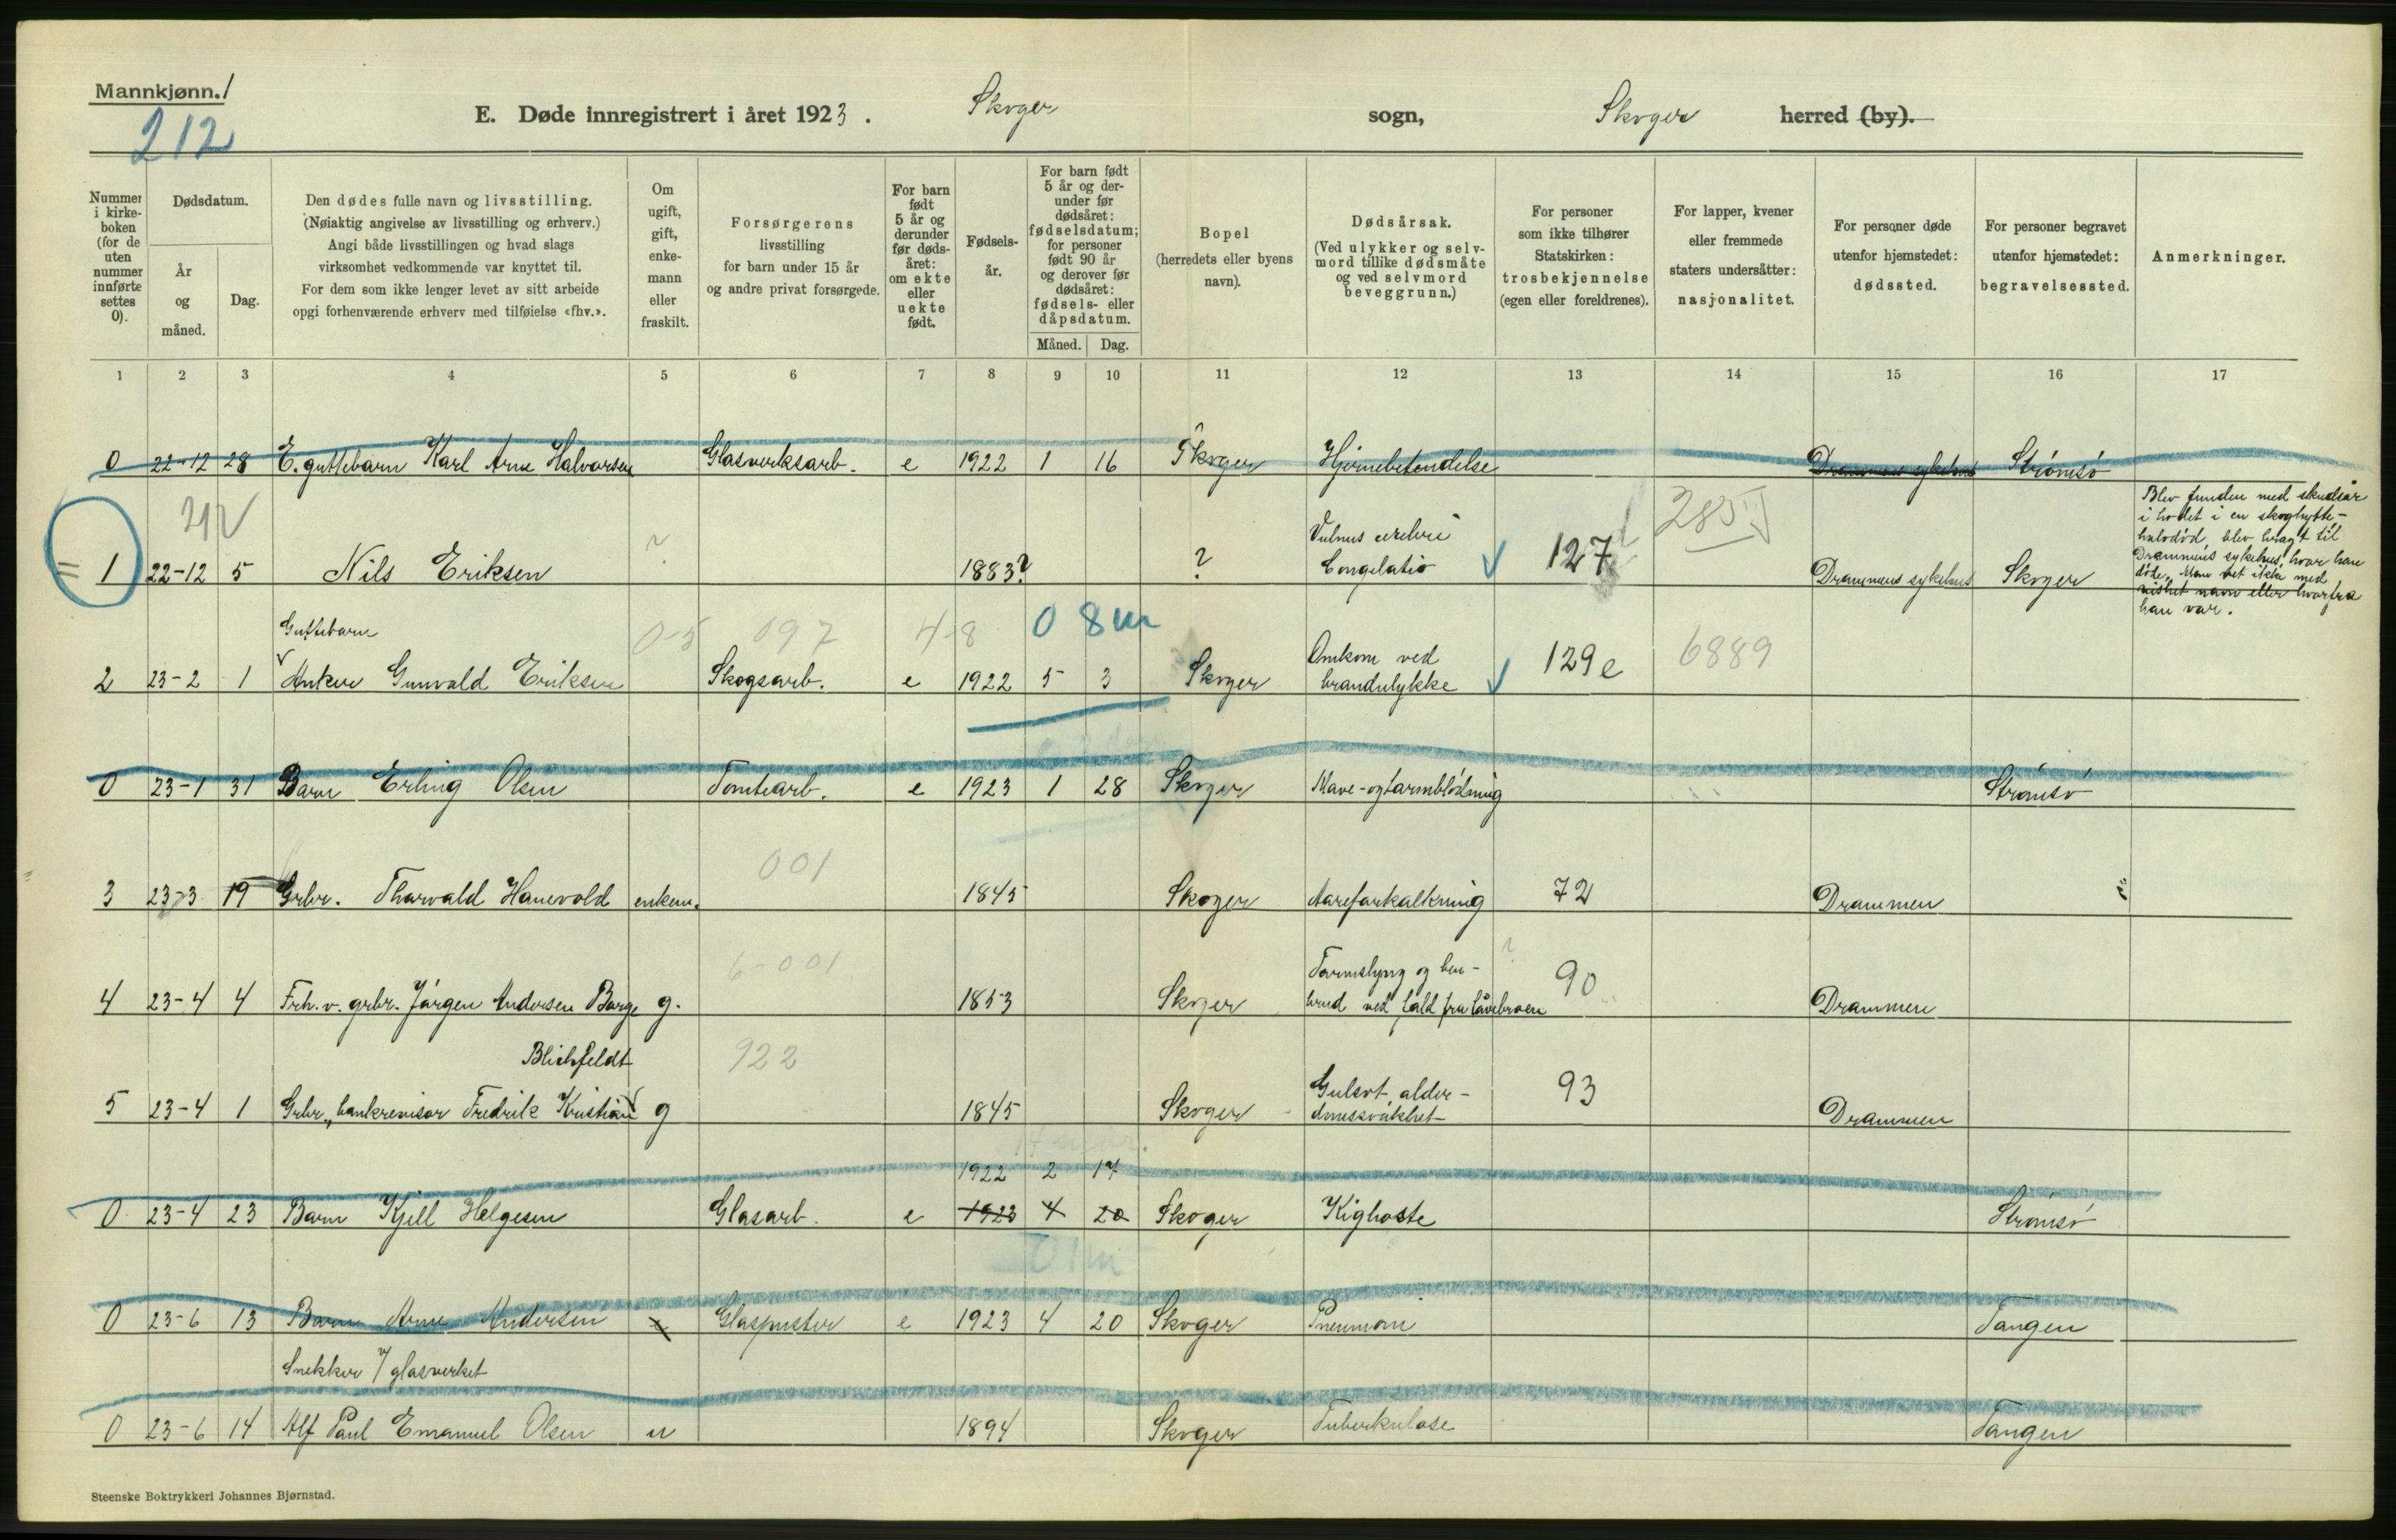 Mannkjønn. 1
212
E. Døde innregistrert i året 1923. Skoger sogn, Skoger herred (by).
Nummer i kirkeboken (for de uten nummer innførte settes 0).
Dødsdatum.
År og måned.
Dag.
Den dødes fulle navn og livsstilling.
(Nøiaktig angivelse av livsstilling og erhverv.)
Angi både livsstillingen og hvad slags
virksomhet vedkommende var knyttet til.
For dem som ikke lenger levet av sitt arbeide
opgi forhenværende erhverv med tilføielse «fhv.».
Om ugift, gift, enkemann eller fraskilt.
Forsørgerens
livsstilling
for barn under 15 år
og andre privat forsørgede.
For barn født 5 år og derunder før dødsåret: om ekte eller uekte født.
Fødselsår.
For barn født 5 år og derunder før dødsåret: fødselsdatum; for personer født 90 år og derover før dødsåret: fødsels- eller dåpsdatum.
Måned. Dag.
Bopel
(herredets eller byens
navn).
Dødsårsak.
(Ved ulykker og selvmord tillike dødsmåte og ved selvmord beveggrunn.)
For personer
som ikke tilhører
Statskirken:
trosbekjennelse
(egen eller foreldrenes).
For lapper, kvener
eller fremmede
staters undersåtter:
nasjonalitet.
For personer døde
utenfor hjemstedet:
dødssted.
For personer begravet
utenfor hjemstedet:
begravelsessted.
Anmerkninger.
1 2 3 4 5 6 7 8 9 10 11 12 13 14 15 16 17
0 22-12 28 E. guttebarn Karl Arne Halvorsen Glasverksarb. e 1922 1 16 Skoger Hjernebetendelse Drammens sykehus Strömsö
212 285
1 22-12 5 Nils Eriksen ? 1883? ? Vulnus cerebri
Congelatio 127 Drammens sykehus Skoger
Blev funden med skudsår
i hodet i en skoghytte -
halvdöd, blev bragt til
Drammens sykehus, hvor han
döde. Man vet ikke med
vishet navn eller hvorfra
han var.
Guttebarn 0-5 097 4-8 0 8m
2 23-2 1 Anker Gunvald Eriksen Skogsarb. e 1922 5 3 Skoger Omkom ved
brandulykke 129e 6889
0 23-1 31 Barn Erling Olsen Tomtearb. e 1923 1 28 Skoger Mave- og tarmblödning Strömsö
001
3 23-3 19 Grbr. Thorvald Hanevold enkem. 1845 Skoger Aareforkalkning 72 Drammen
6-001
4 23-4 4 Frh. v. grbr. Jörgen Andersen Borge g. 1853 Skoger Tarmslyng og ben-
brud ved fald fra låvebroen 90 Drammen
Blichfeldt 922
5 23-4 1 Grbr., bankrevisor Fredrik Kristian g 1845 Skoger Gulsot, alder-
domssvakhet 93 Drammen
1922 2 17
0 23-4 23 Barn Kjell Helgesen Glasarb. e 1923 4 20 Skoger Kighoste Strömsö
01m
0 23-6 13 Barn Arne Andersen e Glaspuster e 1923 4 20 Skoger Pneumoni Tangen
Snekker v/ glasverket
0 23-6 14 Alf Paul Emanuel Olsen u 1894 Skoger Tuberkulose Tangen
Steenske Boktrykkeri Johannes Bjørnstad.